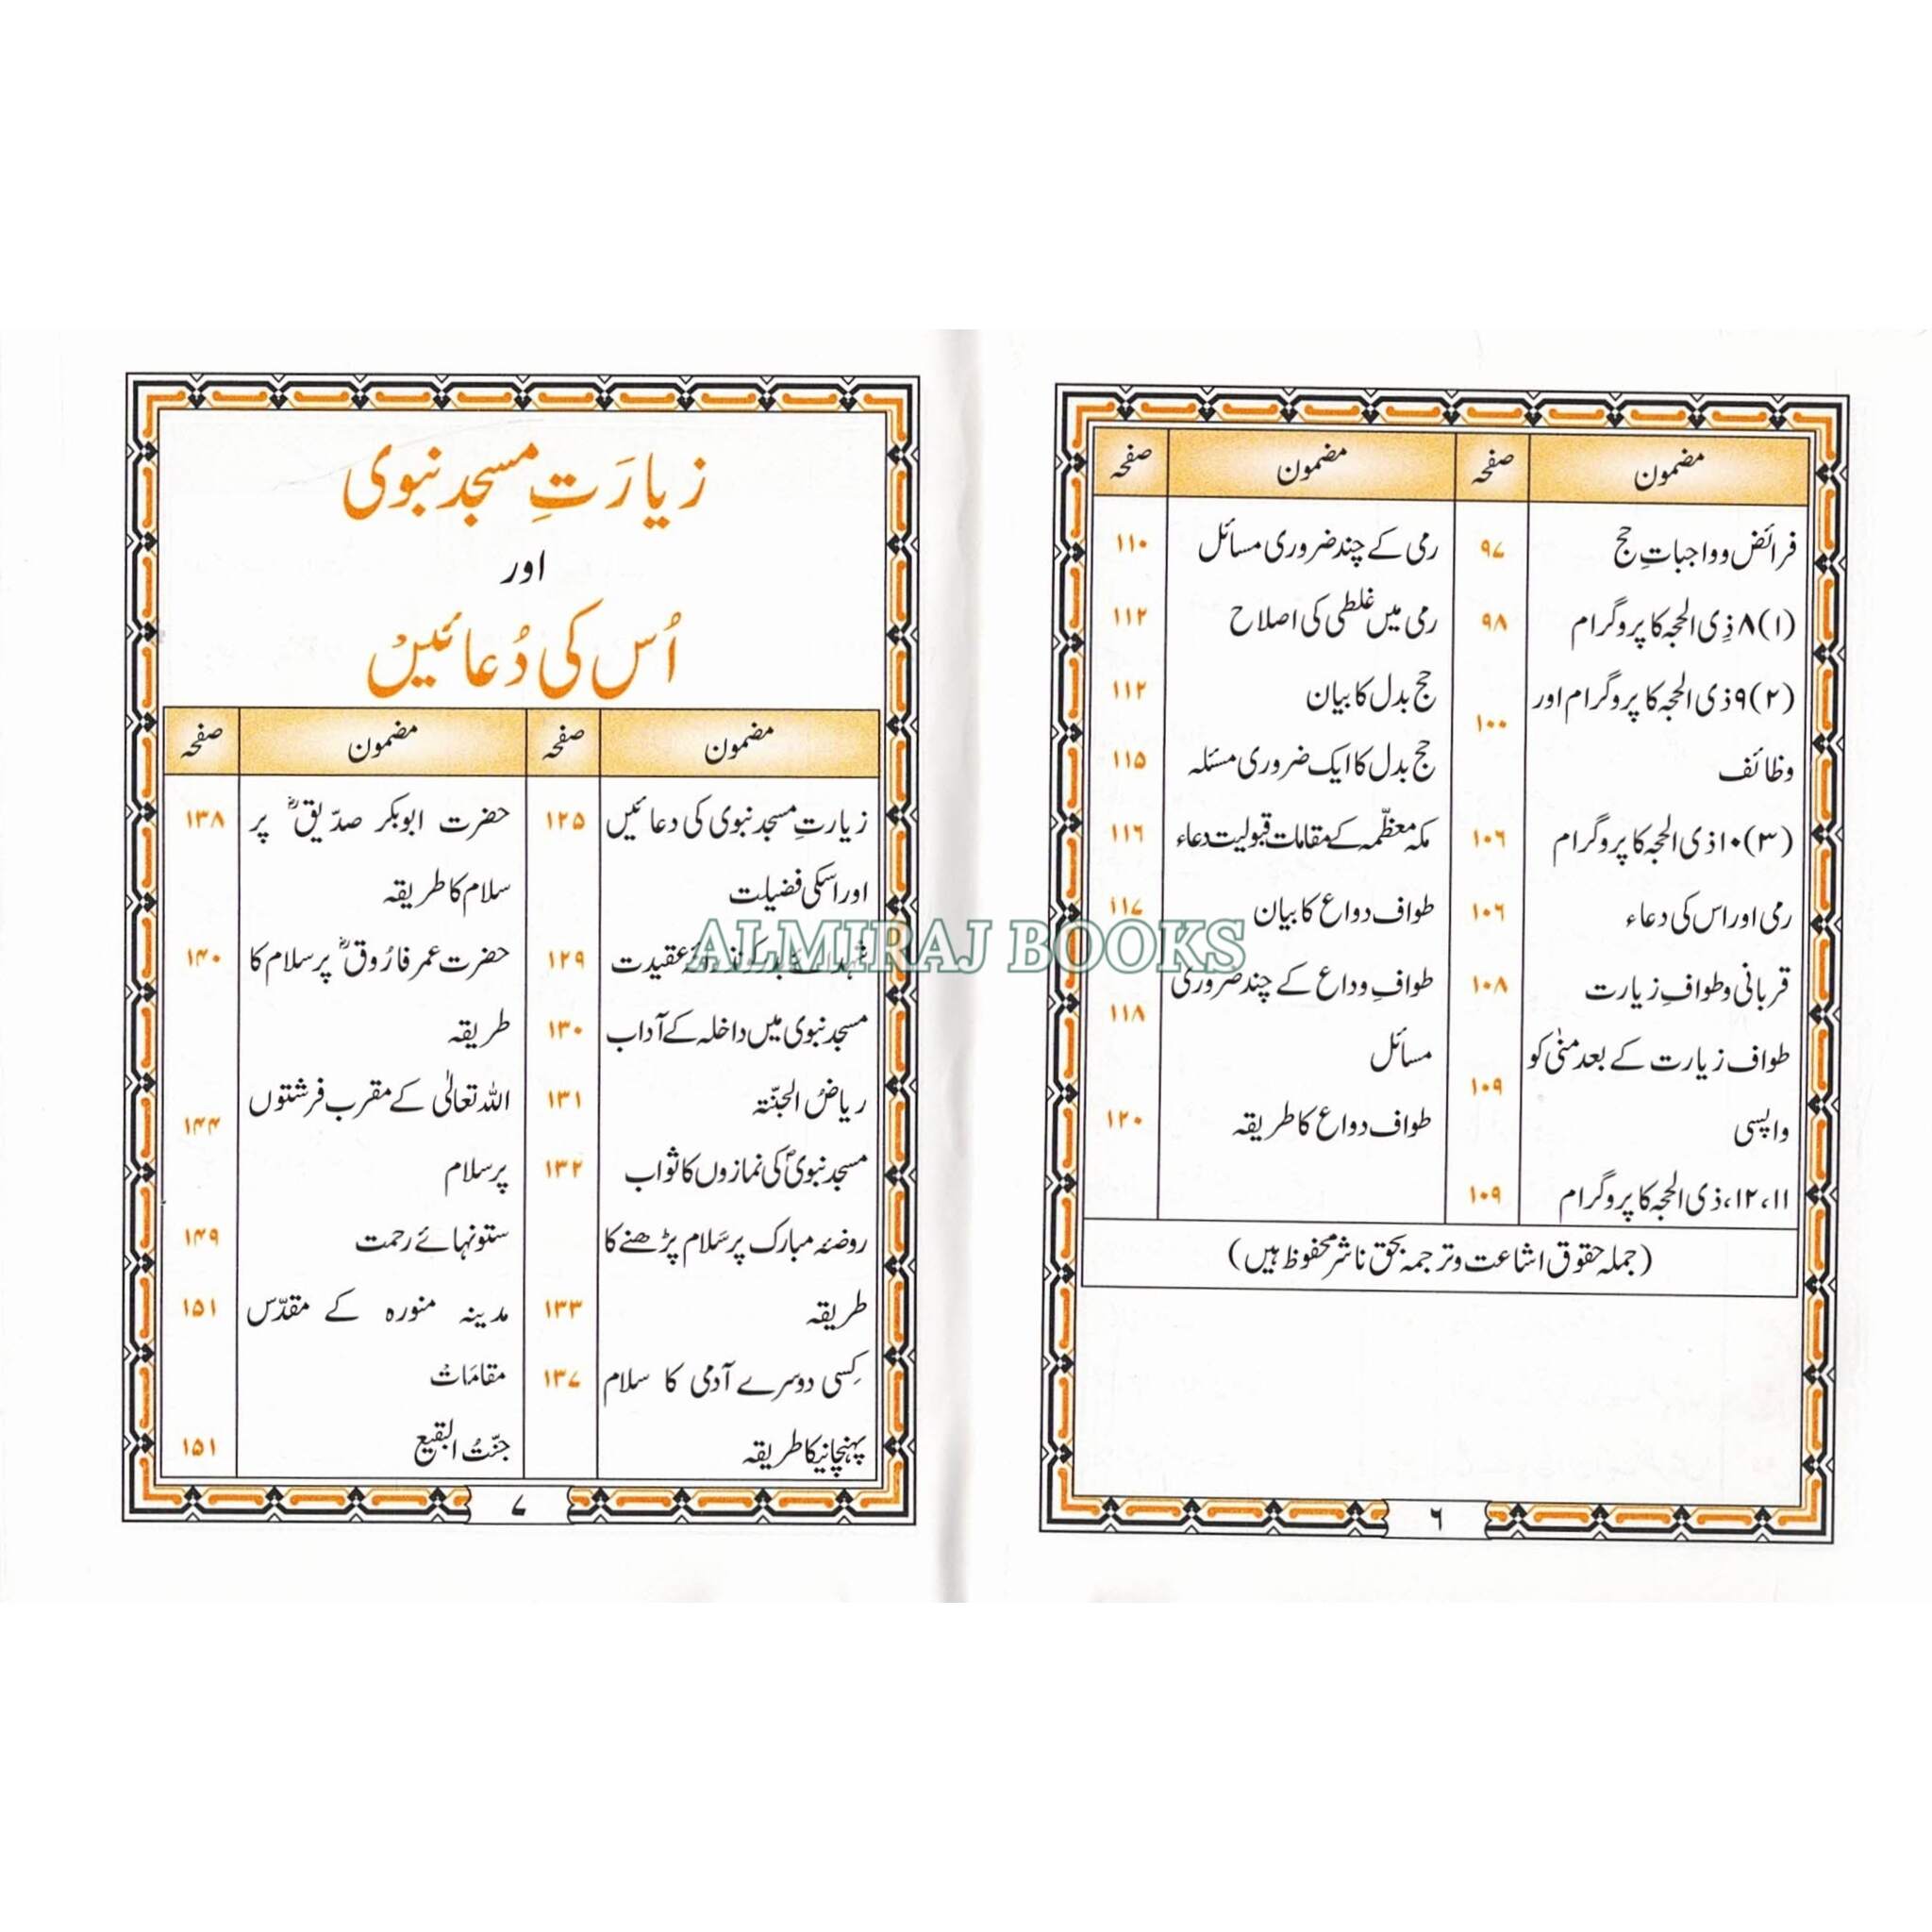 مضمون صفحہ مضمون صفحہ
فرائض و واجباتِ حج ۹۷
(۱) ۸ ذی الحجہ کا پروگرام ۹۸
(۲) ۹ ذی الحجہ کا پروگرام اور
وظائف ۱۰۰
(۳) ۱۰ ذی الحجہ کا پروگرام ۱۰۶
رمی اور اس کی دعاء ۱۰۶
قربانی و طوافِ زیارت ۱۰۸
طواف زیارت کے بعد منیٰ کو
واپسی ۱۰۹
۱۱، ۱۲، ذی الحجہ کا پروگرام ۱۰۹
رمی کے چند ضروری مسائل ۱۱۰
رمی میں غلطی کی اصلاح ۱۱۲
حج بدل کا بیان ۱۱۲
حج بدل کا ایک ضروری مسئلہ ۱۱۵
مکہ معظّمہ کے مقامات قبولیت دعاء ۱۱۶
طواف وداع کا بیان ۱۱۷
طوافِ وداع کے چند ضروری
مسائل ۱۱۸
طواف وداع کا طریقہ ۱۲۰
(جملہ حقوق اشاعت و ترجمہ بحق ناشر محفوظ ہیں)
۶
زیارَتِ مسجد نبوی
اور
اُس کی دُعائیں
مضمون صفحہ مضمون صفحہ
زیارتِ مسجد نبوی کی دعائیں ۱۲۵
اور اسکی فضیلت
عقیدت ۱۲۹
مسجد نبوی میں داخلہ کے آداب ۱۳۰
ریاضُ الجنّتہ ۱۳۱
مسجد نبویؐ کی نمازوں کا ثواب ۱۳۲
روضئہ مبارک پر سَلام پڑھنے کا
طریقہ ۱۳۳
کِسی دوسرے آدمی کا سلام ۱۳۷
پہنچانیکا طریقہ
حضرت ابوبکر صدّیقؓ پر ۱۳۸
سلام کا طریقہ
حضرت عمر فارُوقؓ پر سلام کا ۱۴۰
طریقہ
اللہ تعالٰی کے مقرب فرشتوں
پر سلام ۱۴۴
ستونہائے رحمت ۱۴۹
مدینہ منورہ کے مقدّس ۱۵۱
مقامَات
جنّتُ البقیع ۱۵۱
۷
ALMIRAJ BOOKS